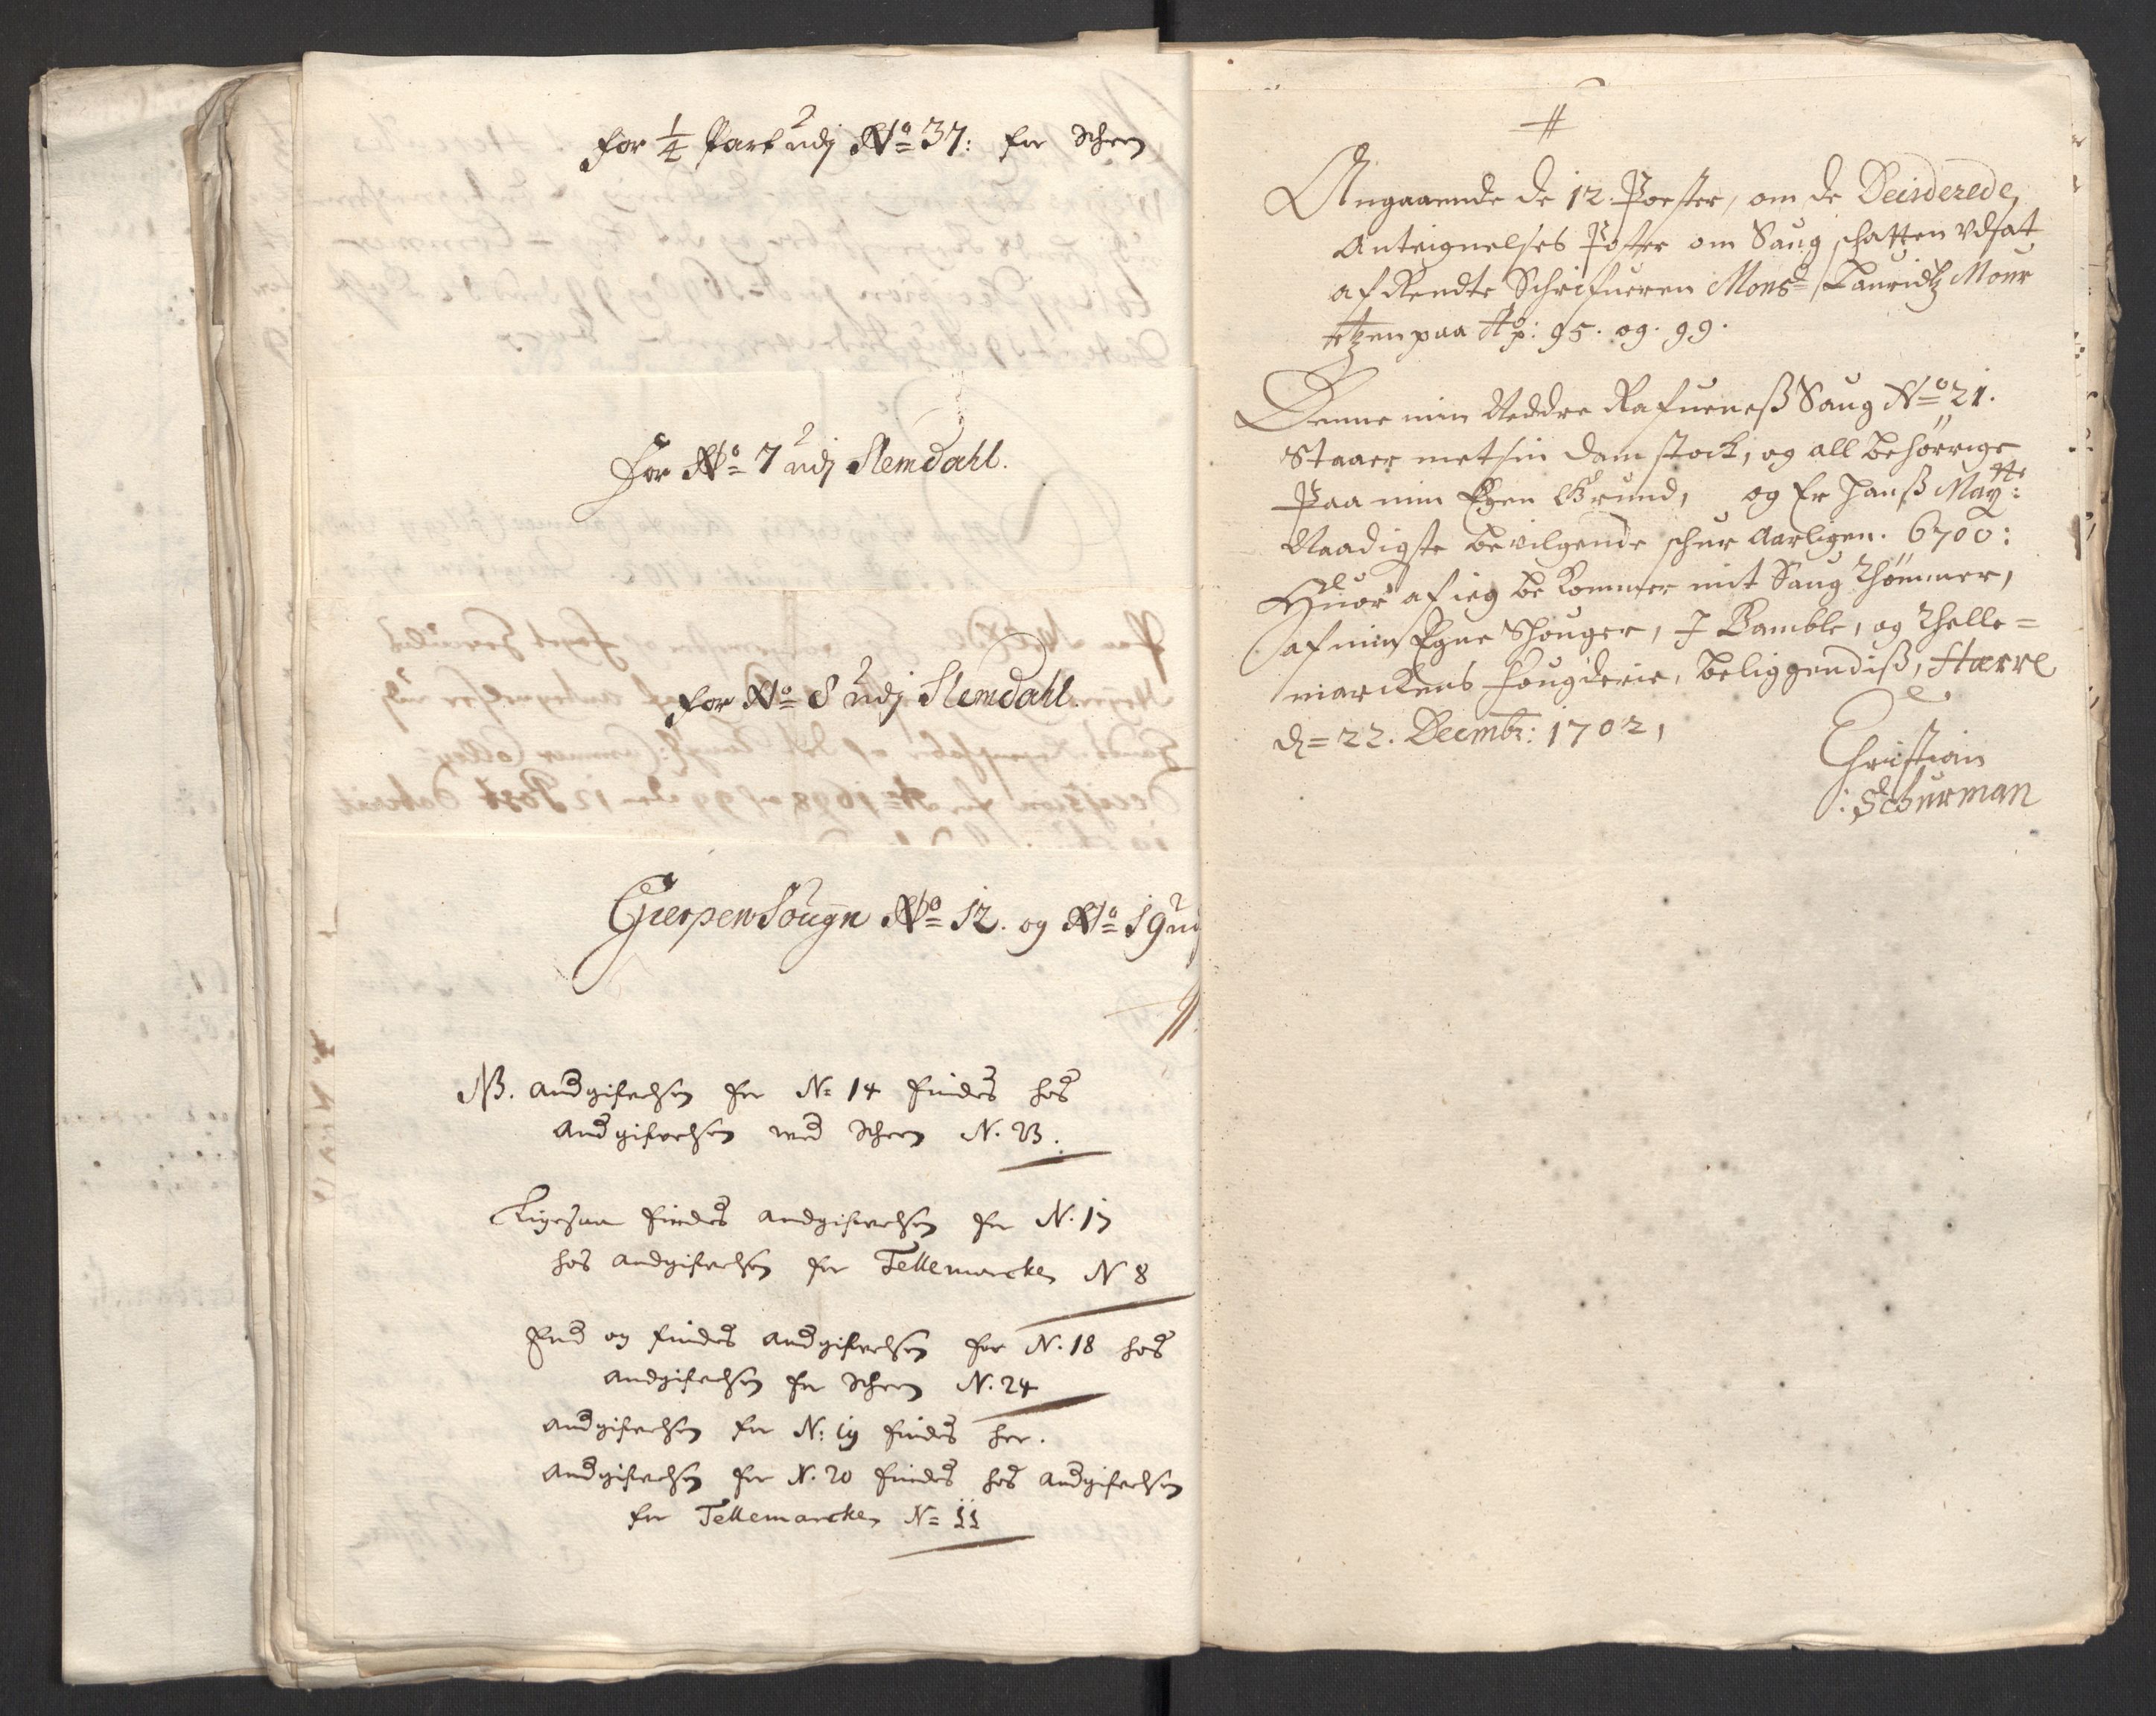 for 1/4 Part udj No 37: for Scheen
For No 7 udj Slemdahl.
for No 8 udj Slemdahl.
Gierpen Sougn No 12. og No 19 ud
NB. andgifvelsen for N: 14 findes hos
andgifvelsen wed Scheen N. 23.
Ligesaa findes andgifvelsen for N. 17
hos andgifvelsen for Tellemarcken N 8
End og findes andgifvelsen for N. 18 hos
andgifvelsen for Scheen N. 24
andgifvelsen for N: 19 findes her.
andgifvelsen for N. 20 findes hos andgifvelsen
for Tellemarcken N= 11
Angaaende de 12. Poster, om de Deciderede
Anteignelses Poster om Saug schatten Udsat
af Rendte Schrifueren Monsr Lauridtz Mour
tzen paa Ao: 95. og. 99.
Denne min Neddre Rafuneß Saug No 21.
Staaer met sin dam stock, og all behørrige
Paa min Egen Grund, og Er Hanß Maytts:
Naadigste bevilgende schur Aarligen. 6700:
Huor af ieg bekommer mit Saug Thømmer,
af min Egne Schouger, I Bamble, og Thelle=
marckens Fougderie, beliggendiß,
d= 22. Decembr: 1702,
Christian
Schurman